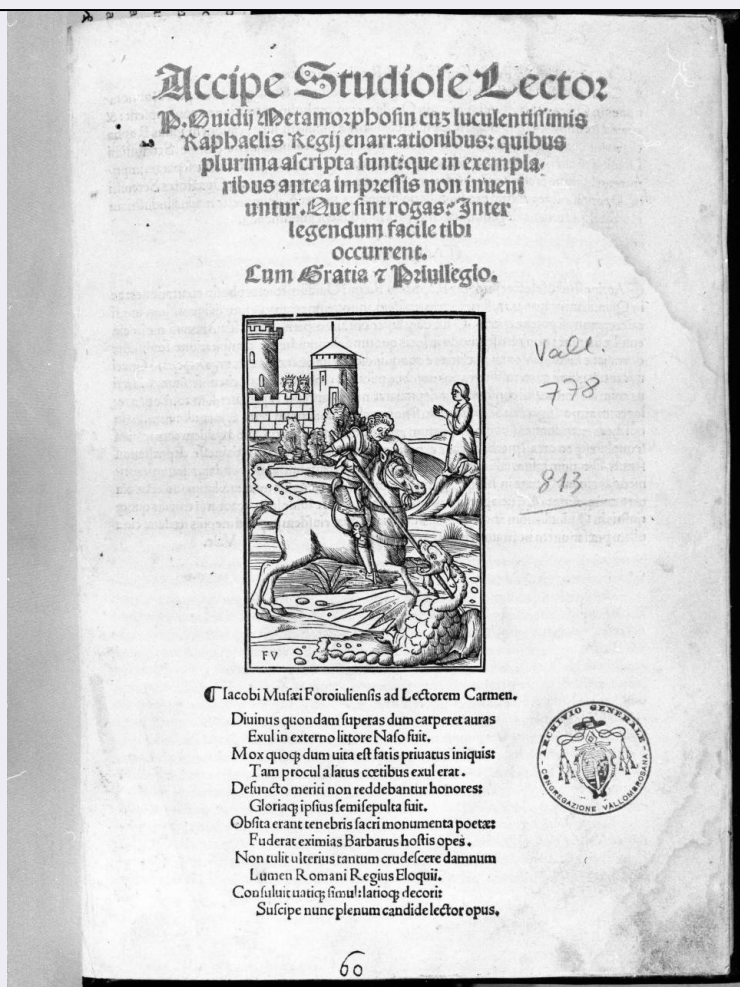 Accipe Studiose Lector
P. Ouidij Metamorphosin cuz luculentissimis
Raphaelis Regij enarrationibus: quibus
plurima ascripta sunt: que in exempla-
ribus antea impressis non inueni
untur. Que sint rogas: Inter
legendum facile tibi
occurrent.
Cum Gratia ⁊ Priuilegio.
Vall
778
813
FV
¶ Iacobi Musæi Foroiuliensis ad Lectorem Carmen.
Diuinus quondam superas dum carperet auras
Exul in externo littore Naso fuit.
Mox quoqꝫ dum uita est fatis priuatus iniquis:
Tam procul a latus cœtibus exul erat.
Defuncto meriti non reddebantur honores:
Gloriaqꝫ ipsius semisepulta fuit.
Obsita erant tenebris sacri monumenta poetæ:
Fuderat eximias Barbarus hostis opes.
Non tulit ulterius tantum crudescere damnum
Lumen Romani Regius Eloquii.
Consuluit uatiqꝫ simul: latioqꝫ decori:
Suscipe nunc plenum candide lector opus.
ARCHIVIO GENERALE
CONGREGAZIONE VALLOMBROSANA
60